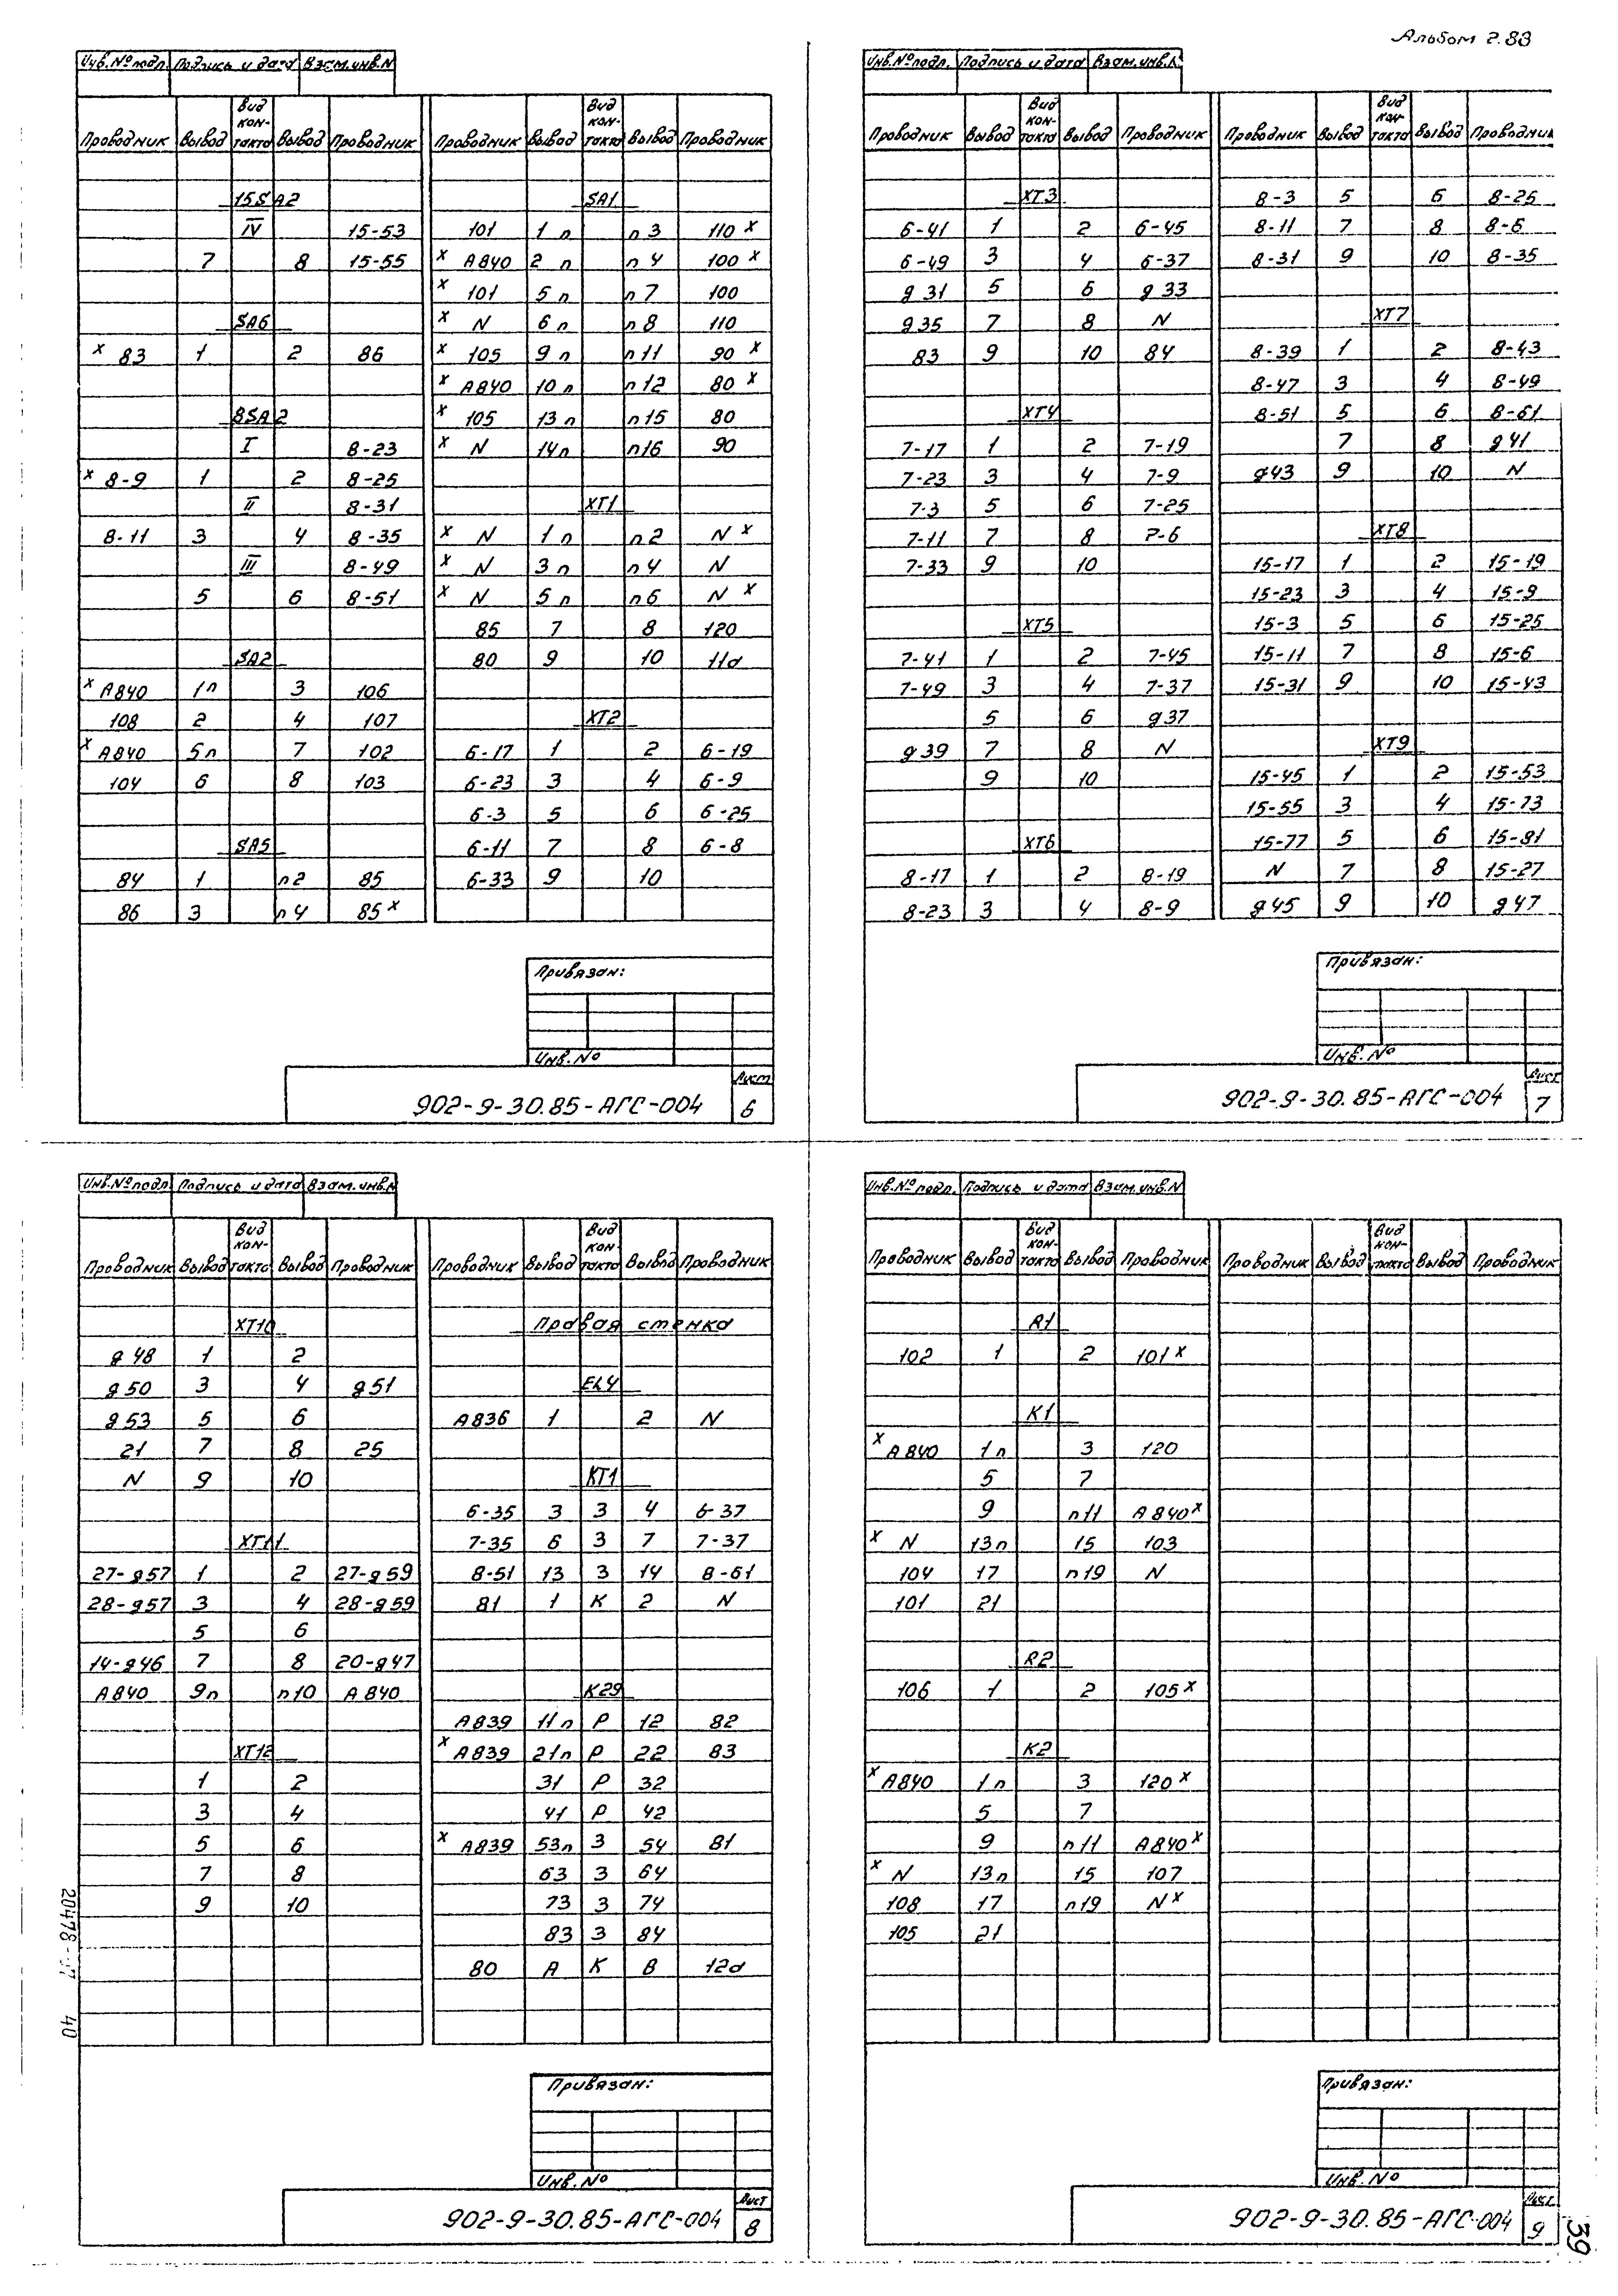 Альбом 2.83
Инв.№ подл. Подпись и дата Взам.инв.N
Проводник Вывод Вид кон-такта Вывод Проводник Проводник Вывод Вид кон-такта Вывод Проводник
15SA2 SA1
IV 15-53 101 1п п3 110 x
7 8 15-55 x А840 2п п4 100 x
x 101 5п п7 100
SA6 x N 6п п8 110
x 83 1 2 86 x 105 9п п11 90 x
x А840 10п п12 80 x
8SA2 x 105 13п п15 80
I 8-23 x N 14п п16 90
x 8-9 1 2 8-25
II 8-31 XT1
8-11 3 4 8-35 x N 1п п2 N x
III 8-49 x N 3п п4 N
5 6 8-51 x N 5п п6 N x
85 7 8 120
SA2 80 9 10 11d
x А840 1п 3 106
108 2 4 107 XT2
x А840 5п 7 102 6-17 1 2 6-19
104 6 8 103 6-23 3 4 6-9
6-3 5 6 6-25
SA5 6-11 7 8 6-8
84 1 п2 85 6-33 9 10
86 3 п4 85 x
Привязан:
Инв.№
902-9-30.85-АГС-004
Лист
6
Инв.№ подл. Подпись и дата Взам.инв.N
Проводник Вывод Вид кон-такта Вывод Проводник Проводник Вывод Вид кон-такта Вывод Проводник
XT3 8-3 5 6 8-25
6-41 1 2 6-45 8-11 7 8 8-6
6-49 3 4 6-37 8-31 9 10 8-35
g31 5 6 g33
g35 7 8 N XT7
83 9 10 84 8-39 1 2 8-43
8-47 3 4 8-49
XT4 8-51 5 6 8-61
7-17 1 2 7-19 7 8 g41
7-23 3 4 7-9 g43 9 10 N
7-3 5 6 7-25
7-11 7 8 7-6 XT8
7-33 9 10 15-17 1 2 15-19
15-23 3 4 15-9
XT5 15-3 5 6 15-25
7-41 1 2 7-45 15-11 7 8 15-6
7-49 3 4 7-37 15-31 9 10 15-43
5 6 g37
g39 7 8 N XT9
9 10 15-45 1 2 15-53
15-55 3 4 15-73
XT6 15-77 5 6 15-81
8-17 1 2 8-19 N 7 8 15-27
8-23 3 4 8-9 g45 9 10 g47
Привязан:
Инв.№
902-9-30.85-АГС-004
Лист
7
Инв.№ подл. Подпись и дата Взам.инв.N
Проводник Вывод Вид кон-такта Вывод Проводник Проводник Вывод Вид кон-такта Вывод Проводник
XT10 Правая стенка
g48 1 2
g50 3 4 g51 EL4
g53 5 6 А836 1 2 N
21 7 8 25
N 9 10 KT1
6-35 3 З 4 6-37
XT11 7-35 6 З 7 7-37
27-g57 1 2 27-g59 8-51 13 З 14 8-61
28-g57 3 4 28-g59 81 1 К 2 N
5 6
14-g46 7 8 20-g47
А840 9п п10 А840 K29
А839 11п Р 12 82
XT12 x А839 21п Р 22 83
1 2 31 Р 32
3 4 41 Р 42
5 6 x А839 53п З 54 81
7 8 63 З 64
9 10 73 З 74
83 З 84
80 А К В 12d
Привязан:
Инв.№
902-9-30.85-АГС-004
Лист
8
20478- 40
Инв.№ подл. Подпись и дата Взам.инв.N
Проводник Вывод Вид кон-такта Вывод Проводник Проводник Вывод Вид кон-такта Вывод Проводник
R1
102 1 2 101 x
K1
x А840 1п 3 120
5 7
9 п11 А840 x
x N 13п 15 103
104 17 п19 N
101 21
R2
106 1 2 105 x
K2
x А840 1п 3 120 x
5 7
9 п11 А840 x
x N 13п 15 107
108 17 п19 N x
105 21
Привязан:
Инв.№
902-9-30.85-АГС-004
Лист
9
39